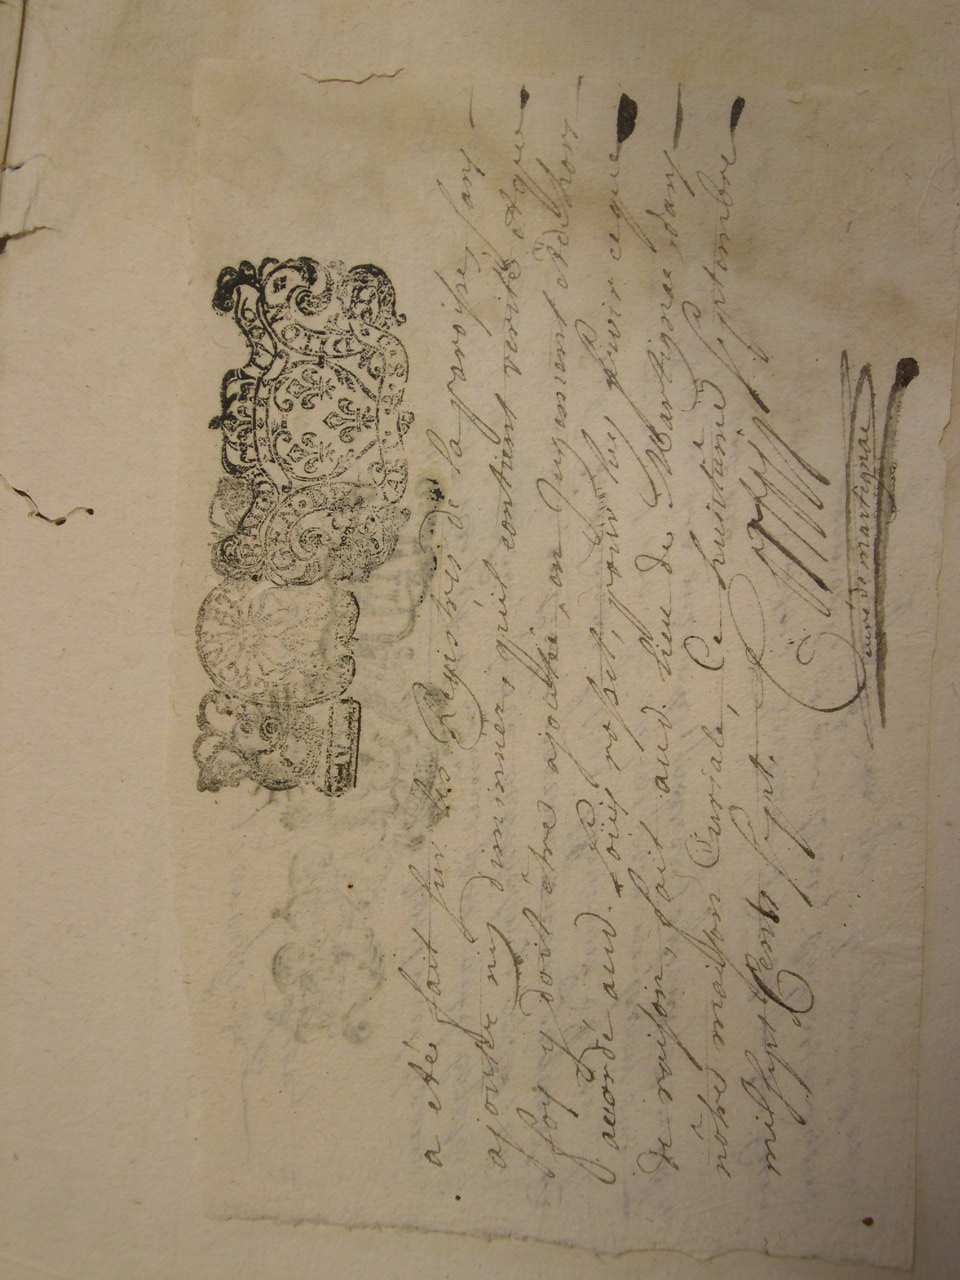 a eté fait sur les Registres de la paroisse, sans
ajouter ny diminuer, qu'il contient verité & que
foy y doit être ajoutée, en Jugement & dehors
accordé aud. pour luy servir ce que
de raison, fait aud. lieu de Martignac, dans
nôtre maison Curiale, Ce huitiême Septembre
mil sept Cents sept.
curé de martignac